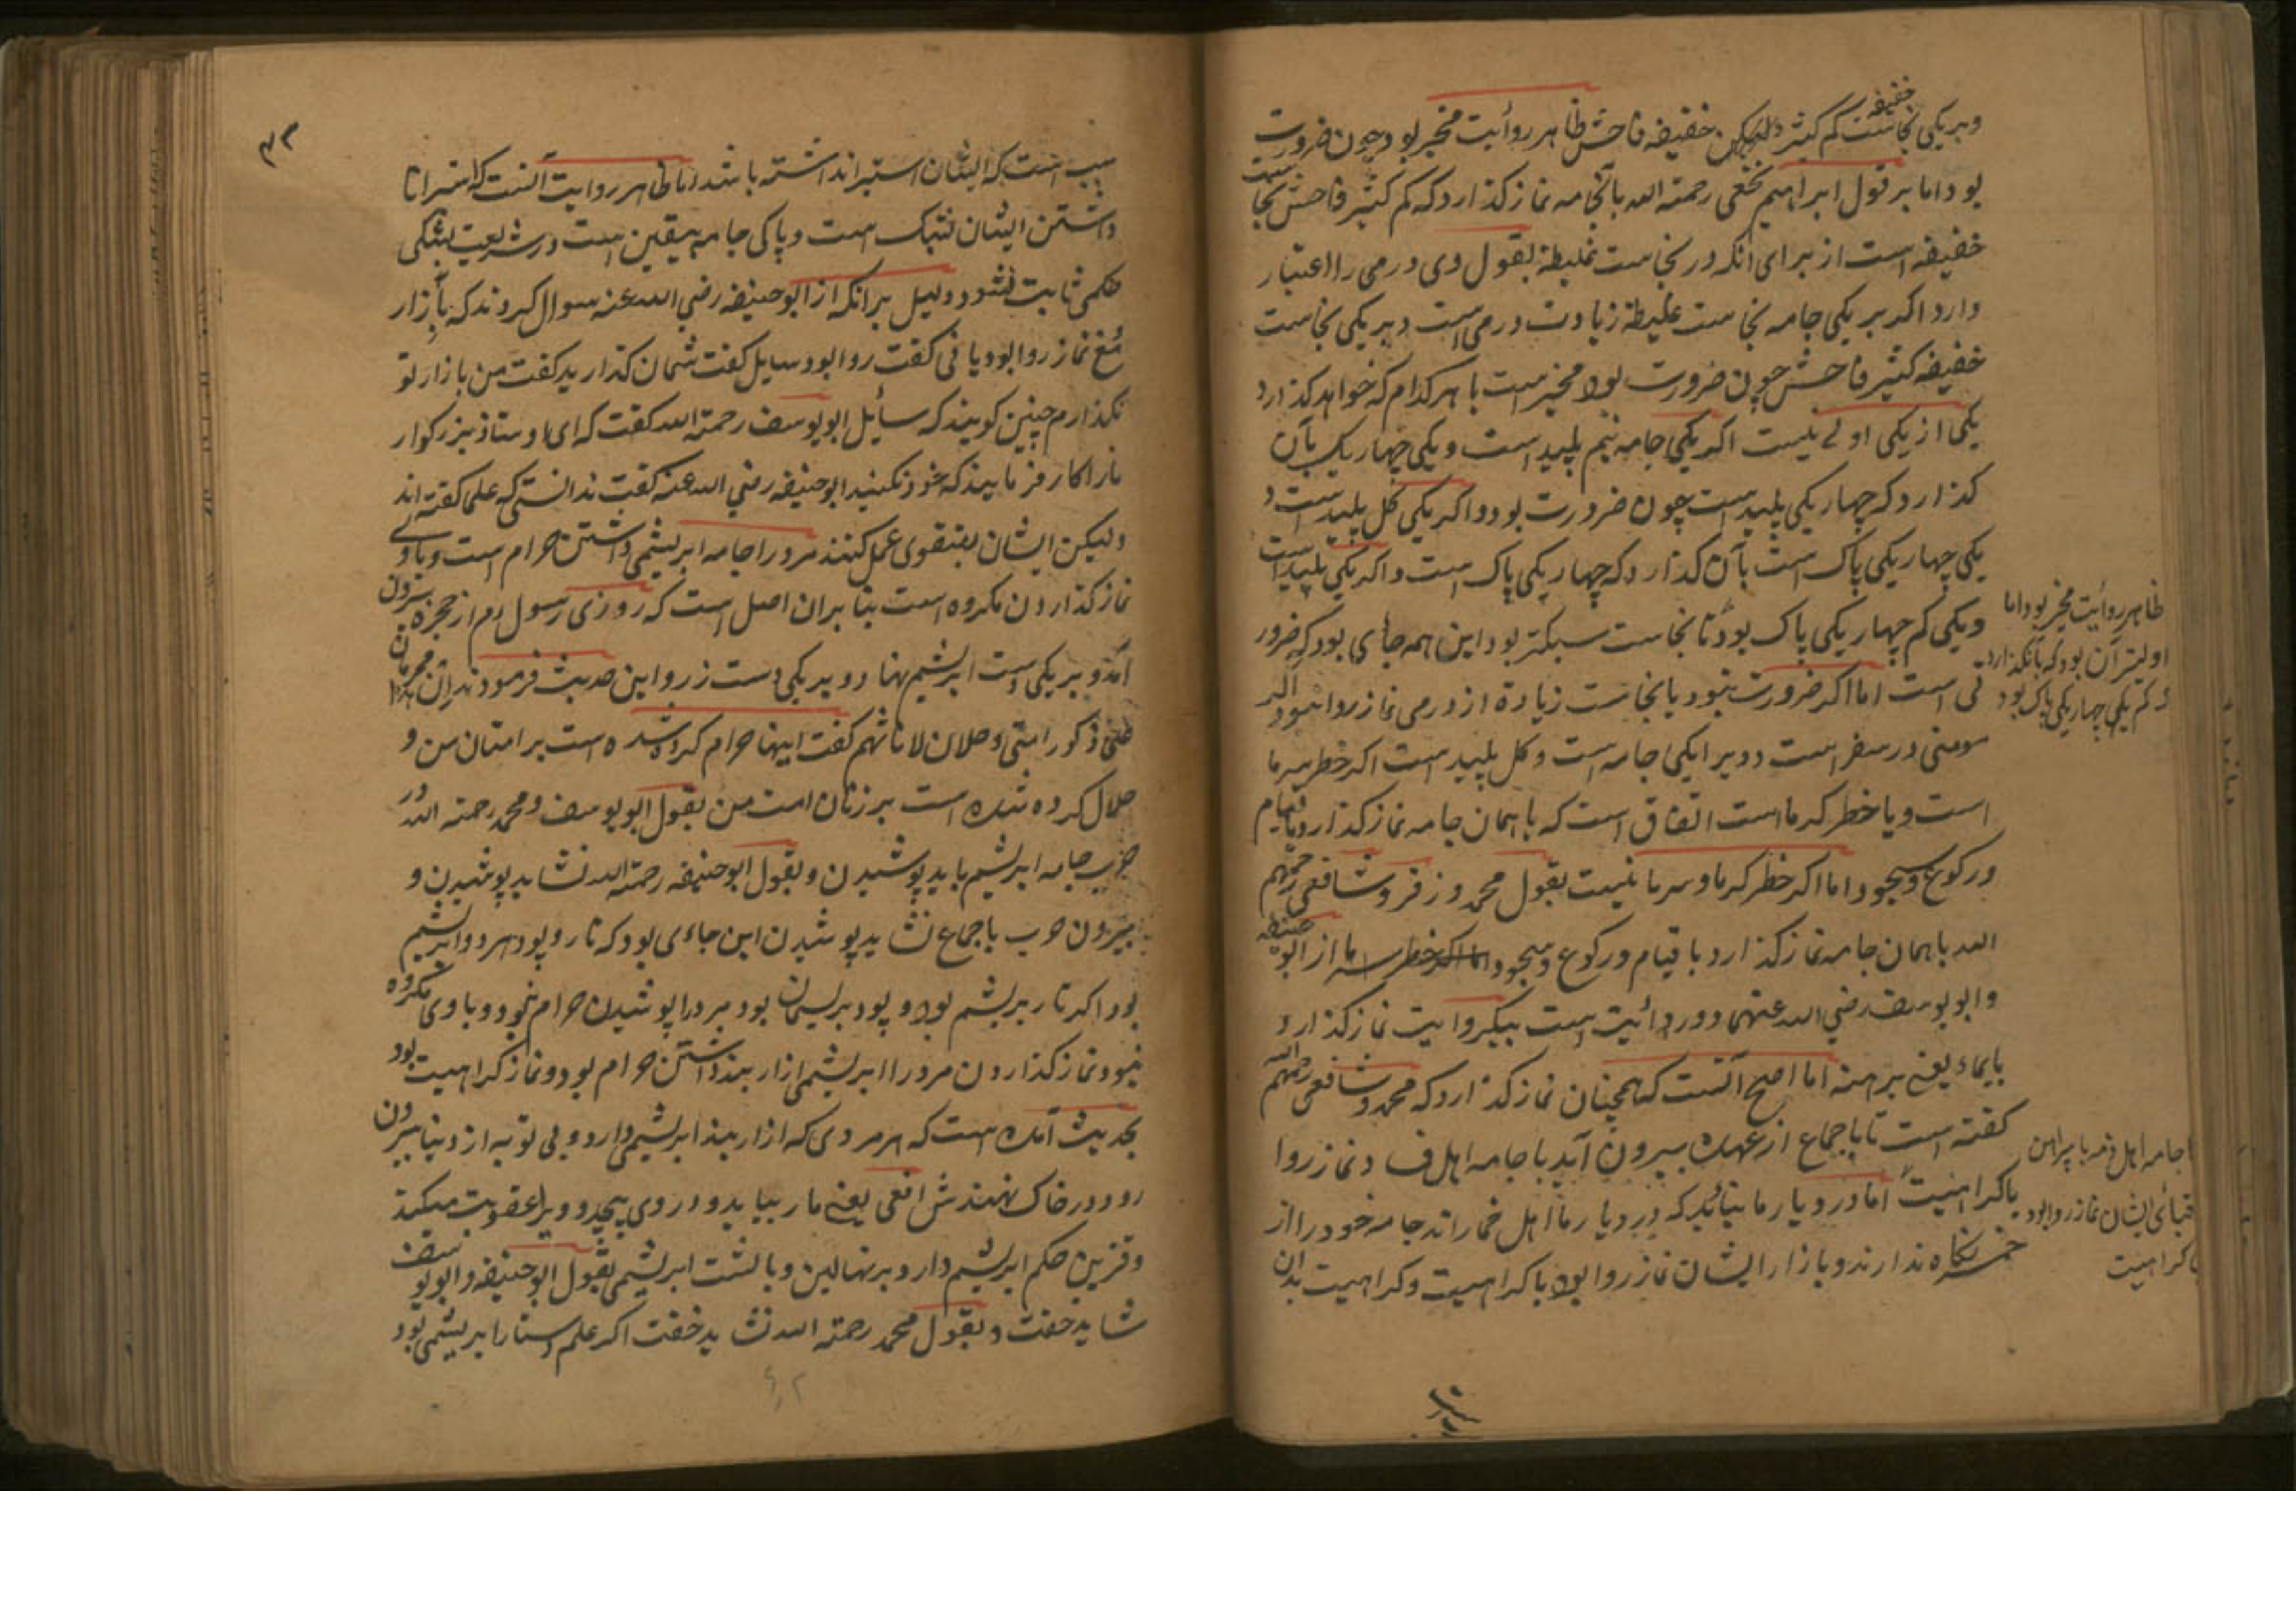 وبر یکی نجاست کم کثیر خفیفه فاحش ظاهر روأیت مخیر بود چون ضرورت
بود اما بر قول ابراهیم نخعی رحمته الله بآنجامه نماز کذارد که کم کثیر فاحش نجا ست
خفیفه است از برای انکه در نجاست غلیظه بقول وی درمی را اعتبار
دارد اکر بر یکی جامه نجاست غلیظه زیادت درمی است و بر یکی نجاست
خفیفه کثیر فاحش چون ضرورت بود مخیر است با هر کدام که خواهد کذارد
یکی از یکی اولے نیست اکر یکی جامه نیم پلید است و یکی چهار یک بآن
کذارد که چهار یکی پلید است چون ضرورت بود و اکر یکی کل پلید است و
یکی چهار یکی پاک است بآن کذارد که چهار یکی پاک است و اکر یکی پلید است
و یکی کم چهار یکی پاک بود تا نجاست سبکتر بود این همه جای بود که ضرور
تی است اما اکر ضرورت نبود با نجاست زیادة از درمی نماز روا نبود اکر
مومنی در سفر است و ویرا یکی جامه است و کل پلید است اکر خطر سرما
است و یا خطر کرما است اتفاق است که با همان جامه نماز کذارد با قیام
و رکوع و سجود اما اکر خطر کرما و سرما نیست بقول محمد و زفر و شافعی رحمهم
الله با همان جامه نماز کذارد با قیام و رکوع و سجود اما از ابو حنیفه
و ابو یوسف رضي الله عنهما دو روأئیت است بیکروایت نماز کذارد
بایماء یعنے برهنه اما اصح آنست که همچنان نماز کذارد که محمد و شافعی رحمهم الله
کفته است تا باجماع از عهده بیرون آید با جامه اهل و نماز روا
باکراهیت اما در دیار ما بنائیکه در دیار ما اهل خماراند جامه خود را از
خمر نکاه ندارند و با زار ایشان نماز روا بود با کراهییت و کراهییت بدان
ظاهر روأئیت مخیر بود اما
اولیتر آن بود که بآنکذارد
که کم یکی چهار یکی پاک بود
با جامه اهل ذمه با پیراهن
قبائی ایشان نماز روا بود
باکراهیت
۴۲
سبب است که ایشان استبراند اشته باشد اما ظاهر روایت آنست که استبرا نا
داشتن ایشان بشک است و پاکی جامه بیقین است در شریعت بشکی
حکمی ثابت نشود و دلیل برانکه از ابو حنیفه رضي الله عنه سوال کردند که با زار
مغ نماز روا بود یا نی کفت روا بود سایل کفت شمان کذارید کفت من با زار تو
نکذارم چنین کویند که سأیل ابو یوسف رحمته الله کفت که ای اوستاذ بزرکوار
ما را کار فرمایند که خود نکنید ابو حنیفه رضي الله عنه کفت ندانستی که علما کفته اند
ولیکن ایشان بتقوی عمل کنند مرد را جامه ابریشمی داشتن حرام است و با وے
نماز کذاردن مکروه است بنا بران اصل است که روزی رسول ام از حجره بیرون
آمد و بر یکی دست ابریشم نهاد و بر یکی دست زر و این حدیث فرمودند
علی ذکور امتی و حلال لاناثهم کفت اینها حرام کرده شده است بر امتان من و
حلال کرده شده است بر زنان امت من بقول ابو یوسف و محمد رحمته الله در
حرب جامه ابریشم باید پوشیدن و بقول ابو حنیفه رحمته الله نشاید پوشیدن و
بیرون حرب باجماع نشاید پوشیدن این جاءی بود که تار و پود هر دو ابریشم
بود اکر تار بریشم بود و پود بریسمان بود مرد را پوشیدن حرام نبود و با وی مکروه
نبود نماز کذاردن مرد را ابریشمی ازار بند داشتن حرام بود و نماز کراهیت بود
بحدیث آمده است که هر مردی که ازار بند ابریشمی دارد و بی توبه از دنیا بیرون
رود در خاک نهندش افعی یعنے مار بیاید و در وی پیچد و ویرا عقوبت میکند
و قزین حکم ابریشم دارد بر نهالین و بالشت ابریشمی بقول ابو حنیفه و ابو یوسف
شاید خفت و بقول محمد رحمته الله نشاید خفت اکر علم دستار ابریشمی بود